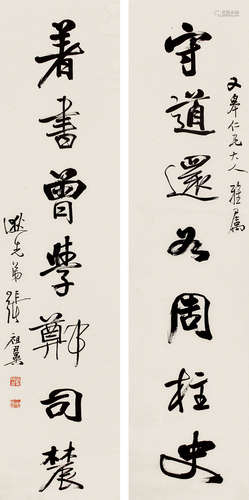 又皋仁兄大人雅屬
守道還周柱史
著書曾學鄭司辳
逖先弟張祖翼